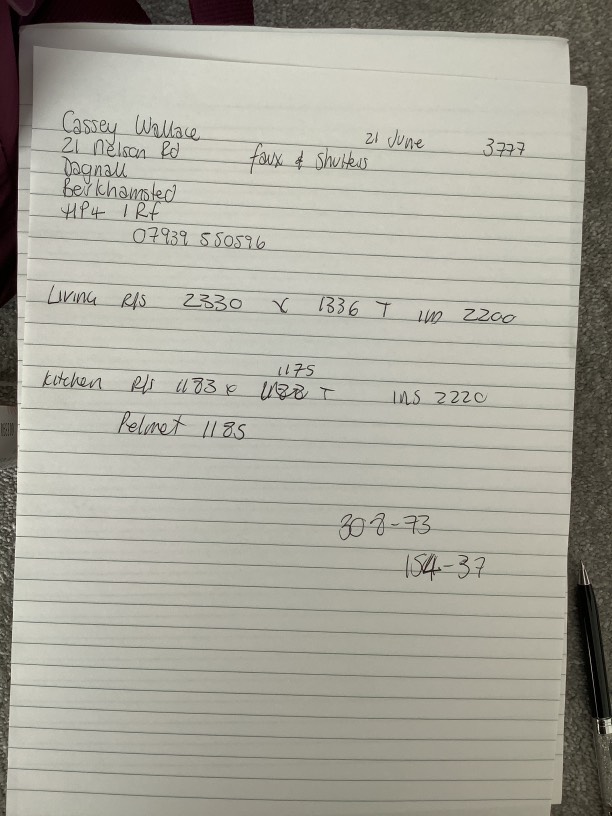 Cassey Wallace
21 June 3777
21 Nelson Rd
faux & Shutters
Dagnall
Berkhamsted
HP4 1RF
07939 550596
Living R/S 2330 x 1336 T ins 2200
1175
Kitchen R/S 1183 x T ins 2220
Pelmet 1185
308-73
154-37